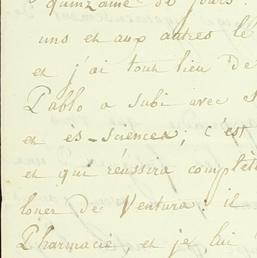 quinzaine de jours.
uns et aux autres le
et j'ai tout lieu de
Pablo a subi avec
et ès-sciences; c'est
et qui réussira complèt
louer de Ventura: il
Pharmacie, et je lui